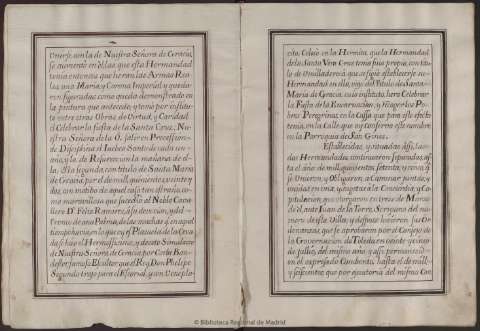 Unerse con la de Nuestra Señora de Gracia,
se aumentó en ellas, que esta Hermandad
tenia entonces que heran las Armas Rea-
les, una Maria, y Corona Imperial y queda-
ron figuradas como queda demonstrado en
la pintura que antecede; y tomó por institu-
to entre otras Obras de Virtud, y Caridad
el Celebrar la fiesta de la Santa Cruz, Nu-
estra Señora de la O, salir en Procesiones
de Disciplina el Jueves Santo de cada un
año, y la de Resurreccion la mañana de e-
lla. Y la segunda con titulo de Santa Maria
de Gracia, por el de mill quinientos
con motibo de aquel caso tan estraño, co-
mo maravilloso que sucedio al Noble Cava-
llero Dn. Felix Ramirez, à su devocion, y del
tronco de una Palma, de las muchas que en aquel
tiempo havia, en lo que oy es Plazuela de la Ceva-
da se hizo el Hermosissimo, y devoto Simulacro
de Nuestra Señora de Gracia por
famoso Escultor que el Rey Don Phelipe
Segundo trajo para el Escorial, y con
cito. Colocó en la Hermita, que la Hermandad
de la Santa Vera Cruz tenia suya propia, con titu-
lo de Humilladero, que se siguió establecerse su
Hermandad en ella, vajo del Titulo de Santa
Maria de Gracia, cuio instituto, hera Celebrar
la Fiesta de la Encarnacion, y recoger los Pobres
Peregrinos, en la Cassa que para este efecto
tenia, en la Calle que oy conserva este nombre
en la Parroquia de San Gines.
Establecidas, y situadas assi, las
dos Hermandades, continuaron separadas, as-
ta el año de mill quinientos setenta, y
se Unieron, y Obligaron, a Caminar juntas, y
unidas en una, y sugetas a la Concordia, y Ca-
pitulacion, que otorgaron en trece de Marzo
de el, ante Juan de la Torre, Scrivano del nu-
mero de esta Villa; y despues hicieron sus Or-
denanzas, que se aprobaron por el Consejo de
la Governacion de Toledo en veinte y cinco
de Jullio, del mismo año, y assi permaneció
en el expresado Combento, hasta el de mill,
y seiscientos que por executoria del mismo Con
© Biblioteca Regional de Madrid